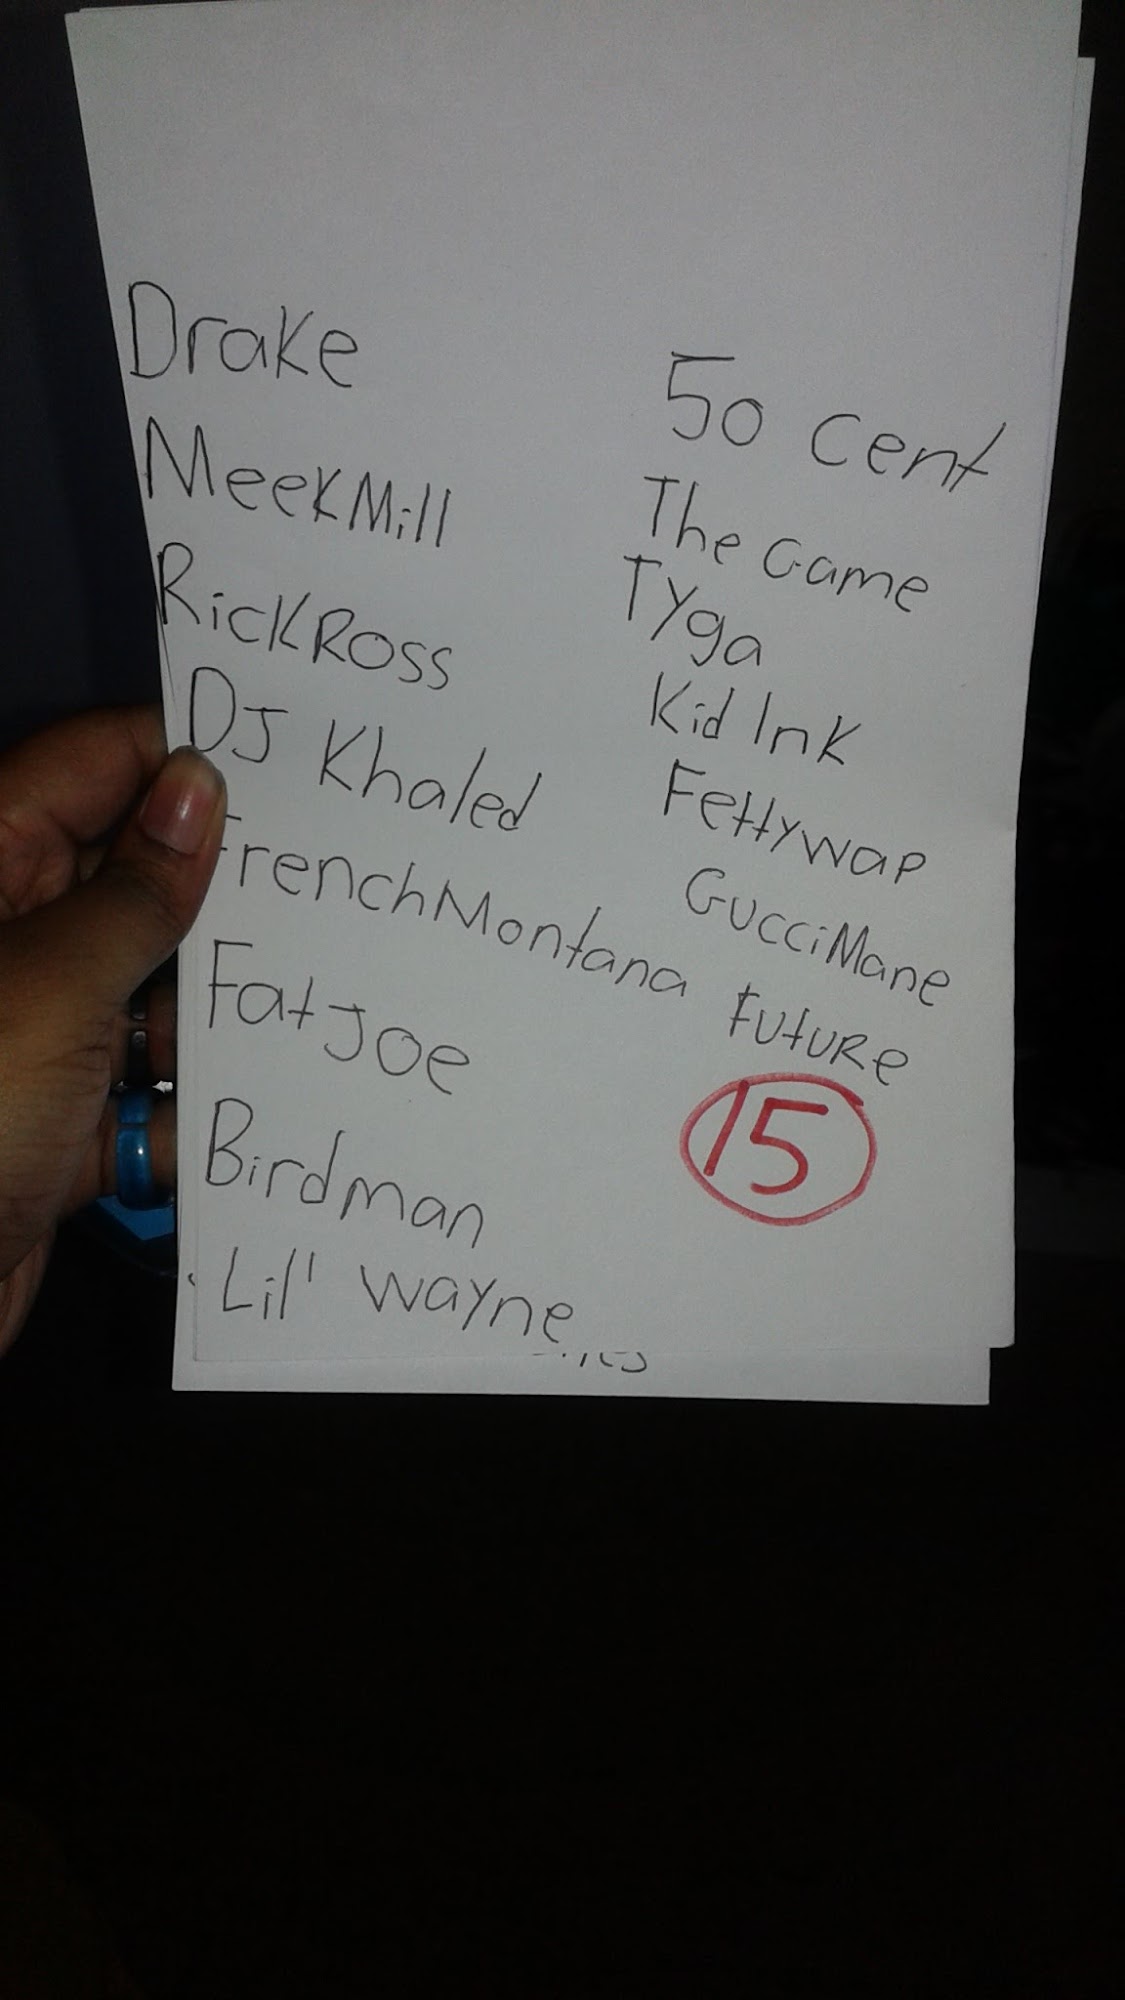 Drake
MeekMill
RickRoss
DJ Khaled
FrenchMontana
Fat Joe
Birdman
Lil' Wayne
50 Cent
The Game
TYga
Kid Ink
Fettywap
GucciMane
Future
15